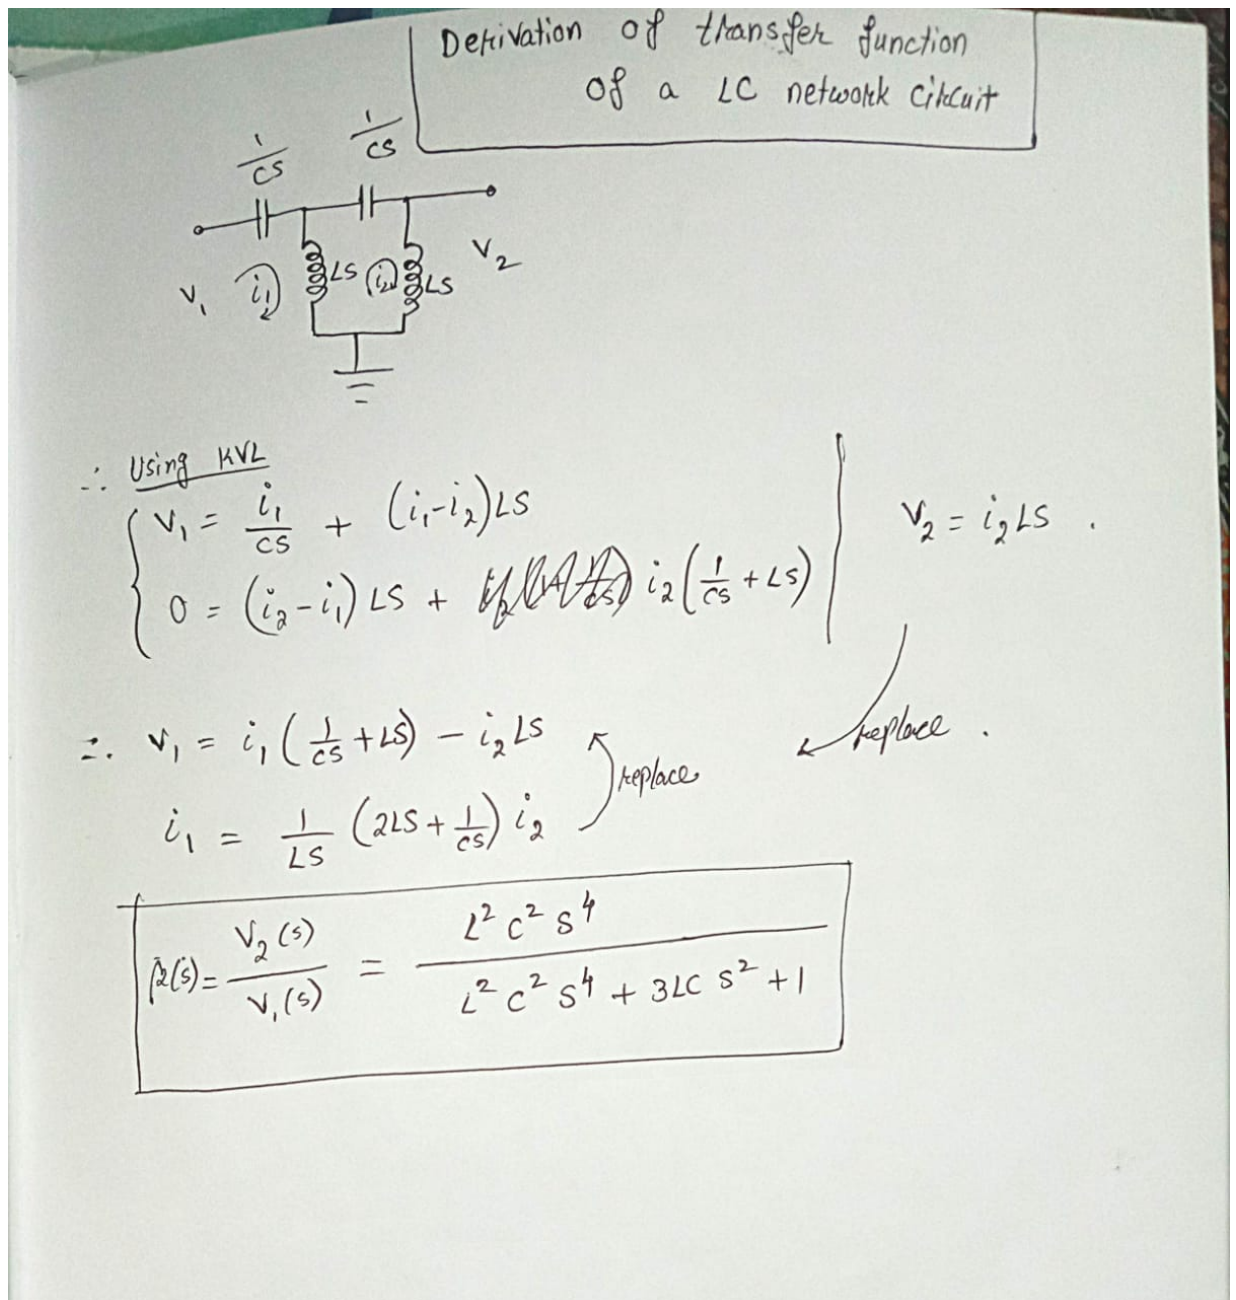 Derivation of transfer function
of a LC network circuit
1/CS
1/CS
V₁ i₁ LS i₂ LS V₂
∴ Using KVL
V₁ = i₁/CS + (i₁-i₂)LS
0 = (i₂-i₁) LS + i₂(1/CS + LS)
V₂ = i₂LS .
replace .
∴ V₁ = i₁(1/CS + LS) - i₂LS
replace
i₁ = 1/LS (2LS + 1/CS) i₂
β(s) = V₂(s)/V₁(s) = L²C²S⁴/(L²C²S⁴ + 3LCS² + 1)